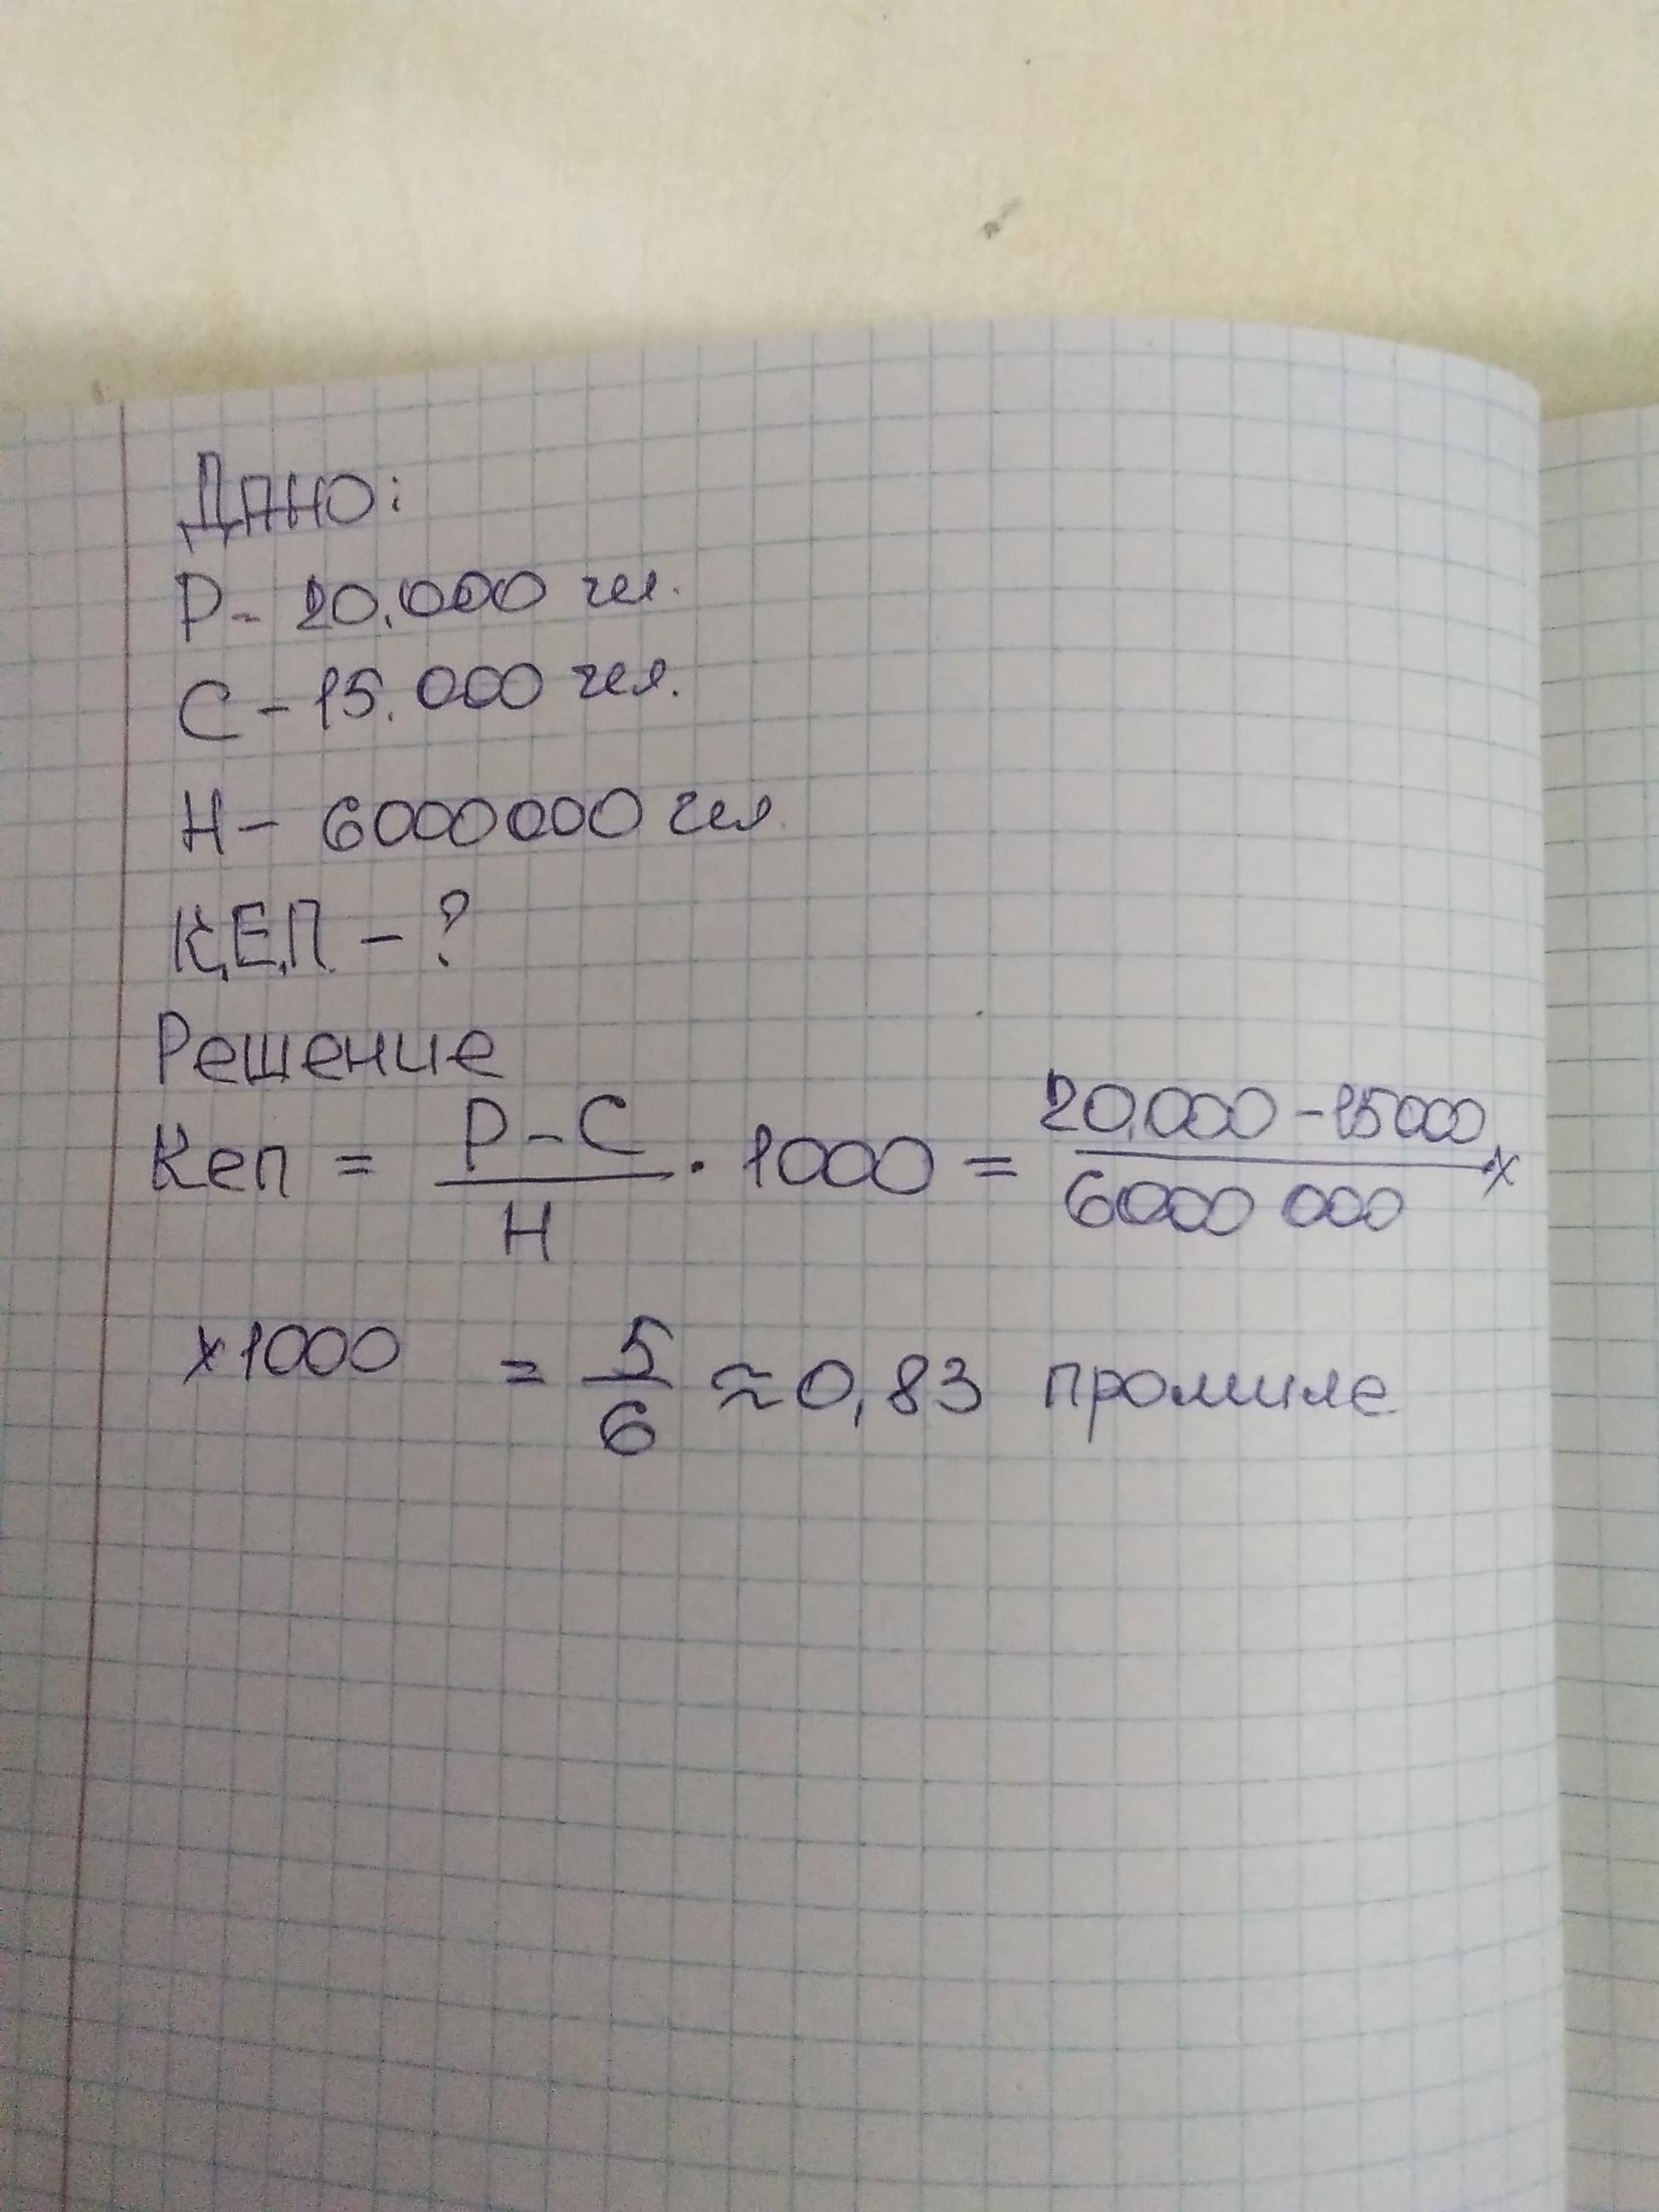 Дано:
Р- 20.000 чел.
С - 15.000 чел.
Н- 6000000 чел.
К.Е.П - ?
Решение
Кеп = Р-С/Н · 1000 = 20.000 -15000/6000 000 x
x1000 = 5/6 ≈ 0,83 промиле